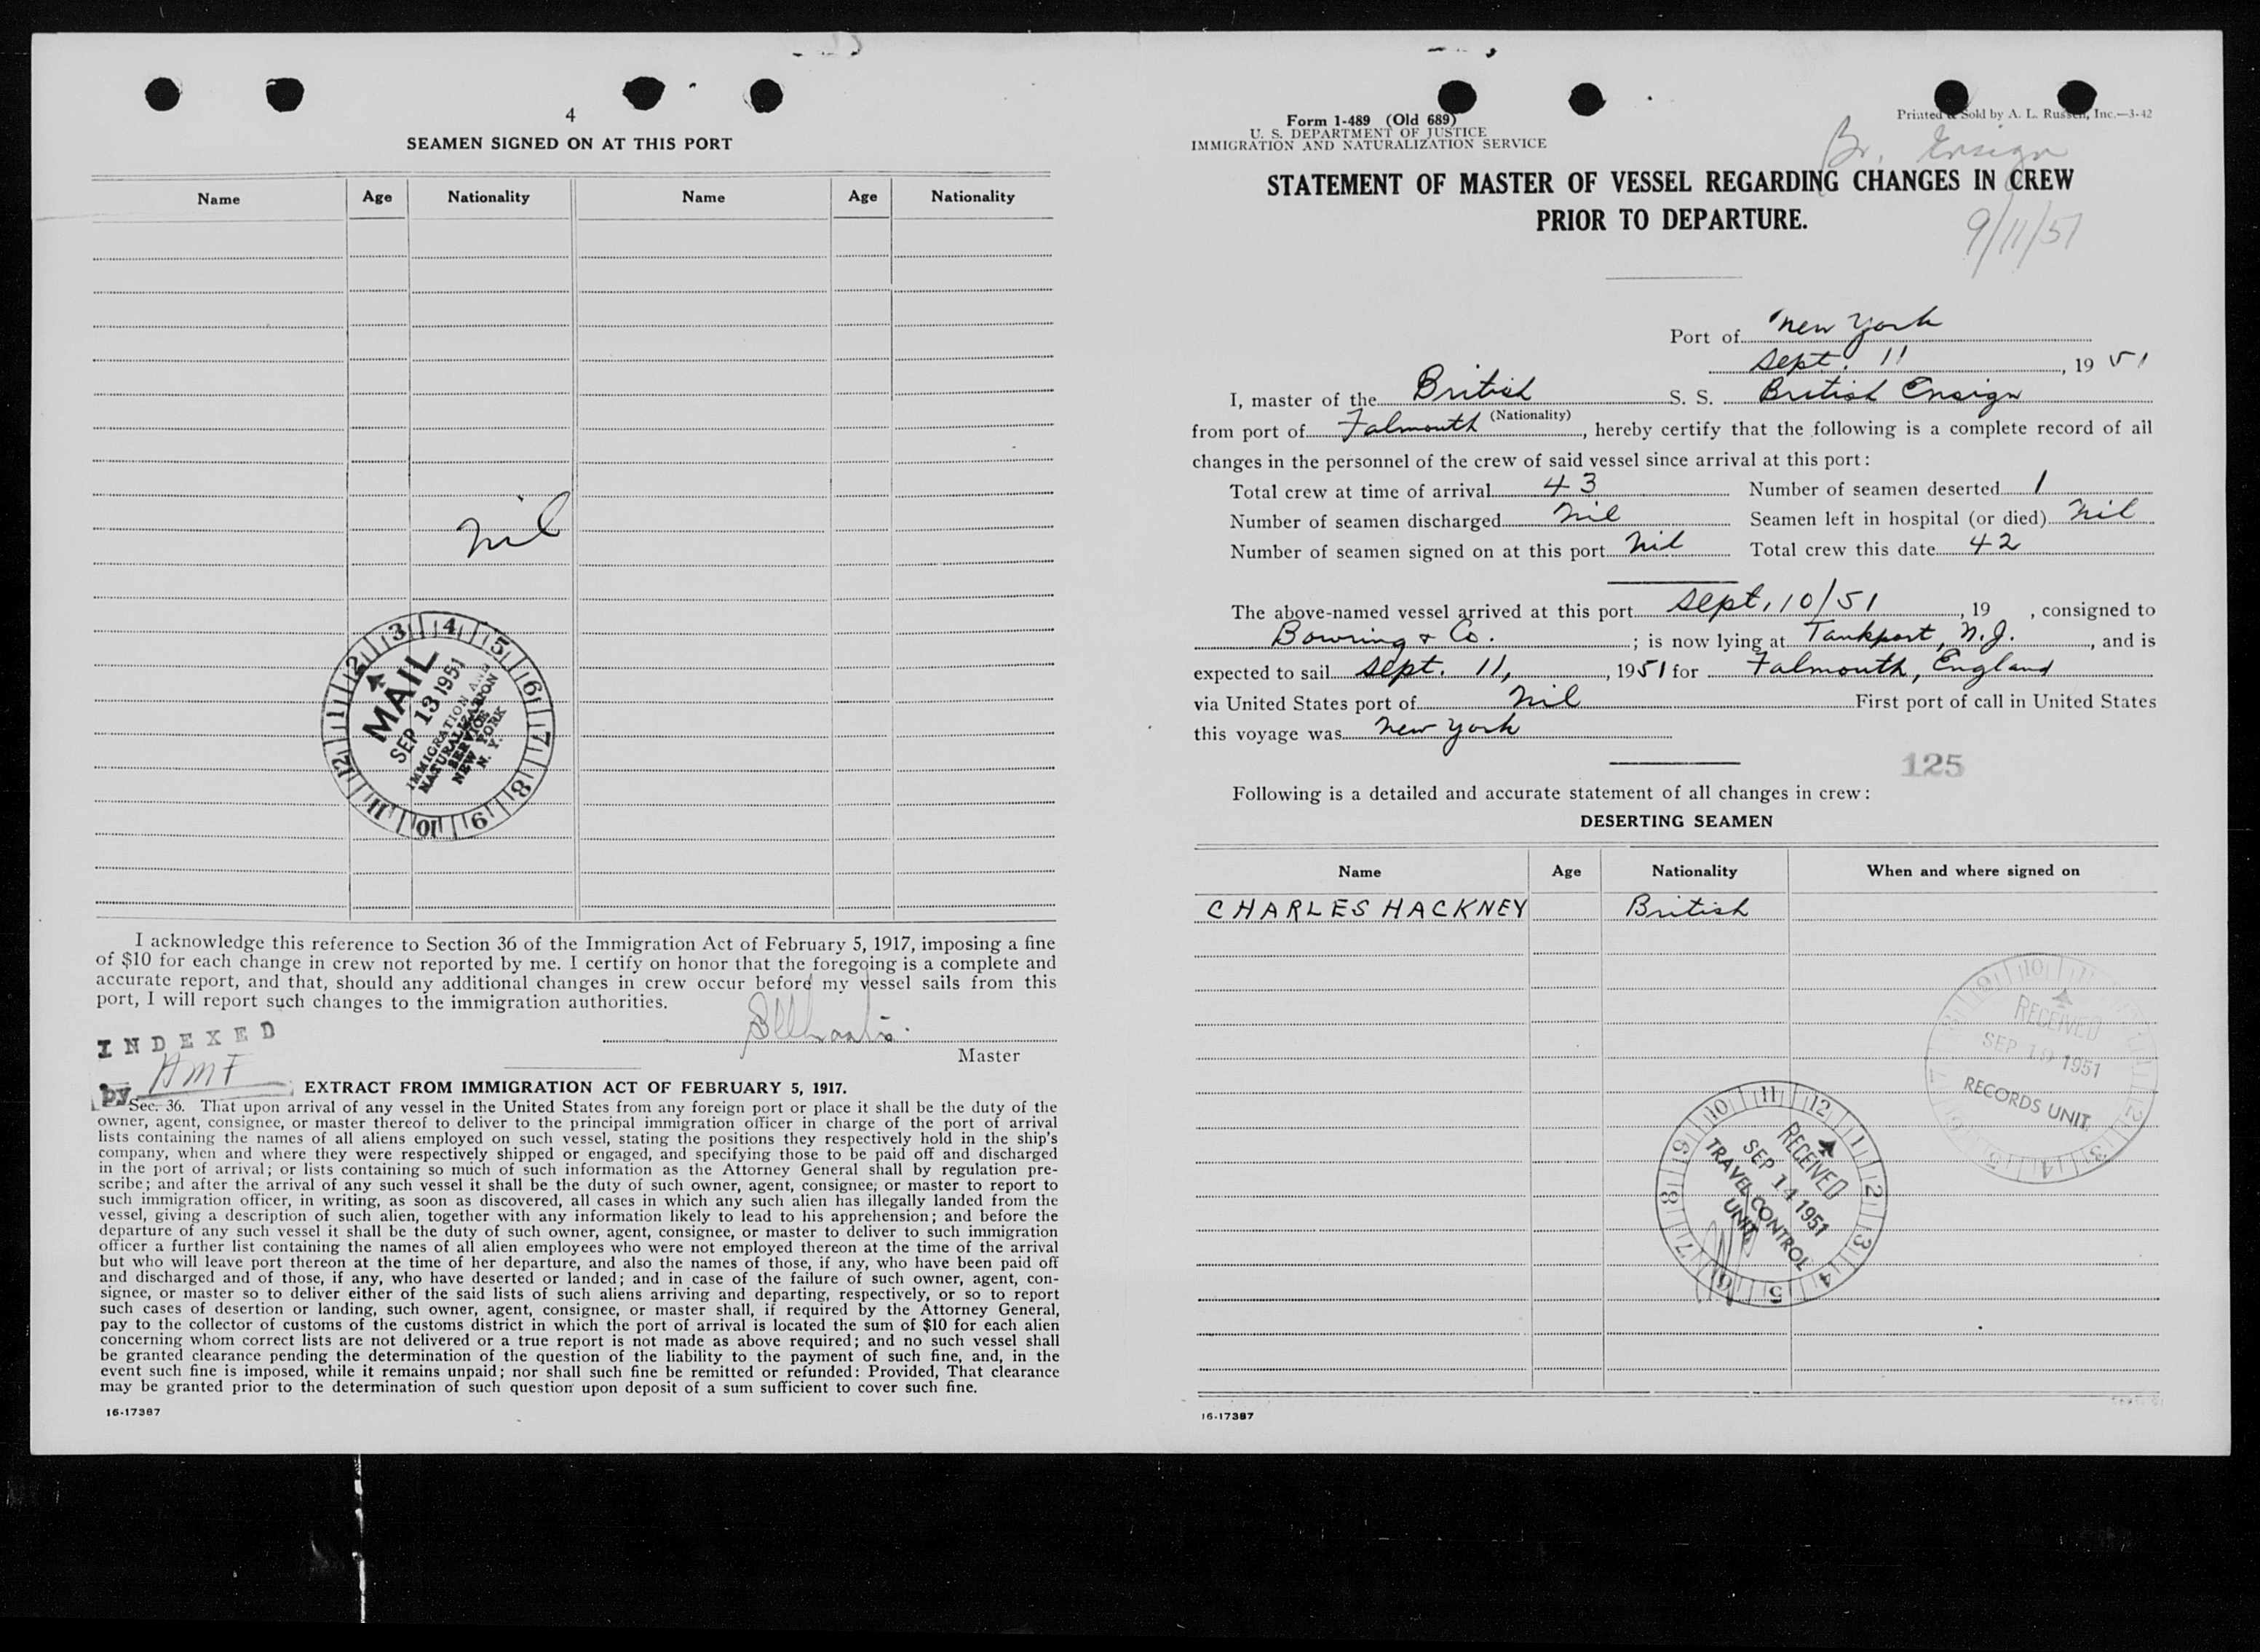 4
SEAMEN SIGNED ON AT THIS PORT
Name Age Nationality Name Age Nationality
Nil
MAIL
SEP 13 1951
IMMIGRATION AND
NATURALIZATION
SERVICE
NEW YORK
N. Y.
1 2 3 4 5 6 7 8 9 10 11 12
I acknowledge this reference to Section 36 of the Immigration Act of February 5, 1917, imposing a fine
of $10 for each change in crew not reported by me. I certify on honor that the foregoing is a complete and
accurate report, and that, should any additional changes in crew occur before my vessel sails from this
port, I will report such changes to the immigration authorities.
INDEXED
Master
by HMF
EXTRACT FROM IMMIGRATION ACT OF FEBRUARY 5, 1917.
Sec. 36. That upon arrival of any vessel in the United States from any foreign port or place it shall be the duty of the
owner, agent, consignee, or master thereof to deliver to the principal immigration officer in charge of the port of arrival
lists containing the names of all aliens employed on such vessel, stating the positions they respectively hold in the ship's
company, when and where they were respectively shipped or engaged, and specifying those to be paid off and discharged
in the port of arrival; or lists containing so much of such information as the Attorney General shall by regulation pre-
scribe; and after the arrival of any such vessel it shall be the duty of such owner, agent, consignee, or master to report to
such immigration officer, in writing, as soon as discovered, all cases in which any such alien has illegally landed from the
vessel, giving a description of such alien, together with any information likely to lead to his apprehension; and before the
departure of any such vessel it shall be the duty of such owner, agent, consignee, or master to deliver to such immigration
officer a further list containing the names of all alien employees who were not employed thereon at the time of the arrival
but who will leave port thereon at the time of her departure, and also the names of those, if any, who have been paid off
and discharged and of those, if any, who have deserted or landed; and in case of the failure of such owner, agent, con-
signee, or master so to deliver either of the said lists of such aliens arriving and departing, respectively, or so to report
such cases of desertion or landing, such owner, agent, consignee, or master shall, if required by the Attorney General,
pay to the collector of customs of the customs district in which the port of arrival is located the sum of $10 for each alien
concerning whom correct lists are not delivered or a true report is not made as above required; and no such vessel shall
be granted clearance pending the determination of the question of the liability to the payment of such fine, and, in the
event such fine is imposed, while it remains unpaid; nor shall such fine be remitted or refunded: Provided, That clearance
may be granted prior to the determination of such question upon deposit of a sum sufficient to cover such fine.
16-17387
Form 1-489 (Old 689)
U. S. DEPARTMENT OF JUSTICE
IMMIGRATION AND NATURALIZATION SERVICE
Printed & Sold by A. L. Russell, Inc.—3-42
Br. Ensign
STATEMENT OF MASTER OF VESSEL REGARDING CHANGES IN CREW
PRIOR TO DEPARTURE.
9/11/51
Port of New York
Sept. 11, 19 51
I, master of the British S. S. British Ensign
(Nationality)
from port of Falmouth, hereby certify that the following is a complete record of all
changes in the personnel of the crew of said vessel since arrival at this port:
Total crew at time of arrival 43 Number of seamen deserted 1
Number of seamen discharged Nil Seamen left in hospital (or died) Nil
Number of seamen signed on at this port Nil Total crew this date 42
The above-named vessel arrived at this port Sept. 10/51, 19 , consigned to
Bowring & Co. ; is now lying at Tankport, N.J., and is
expected to sail Sept. 11, , 1951 for Falmouth, England
via United States port of Nil First port of call in United States
this voyage was New York
125
Following is a detailed and accurate statement of all changes in crew:
DESERTING SEAMEN
Name Age Nationality When and where signed on
CHARLES HACKNEY British
RECEIVED
SEP 19 1951
RECORDS UNIT
RECEIVED
SEP 14 1951
TRAVEL CONTROL
UNIT
10 11 12 1 2 3 4 5 6 7 8 9
16-17387